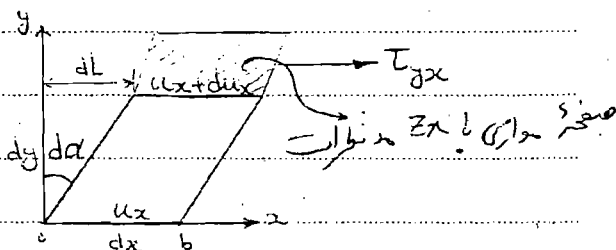 y
dL
ux+dux
τyx
صفحهٔ موازی با zx مد نظر است
dy
dα
ux
x
dx
b